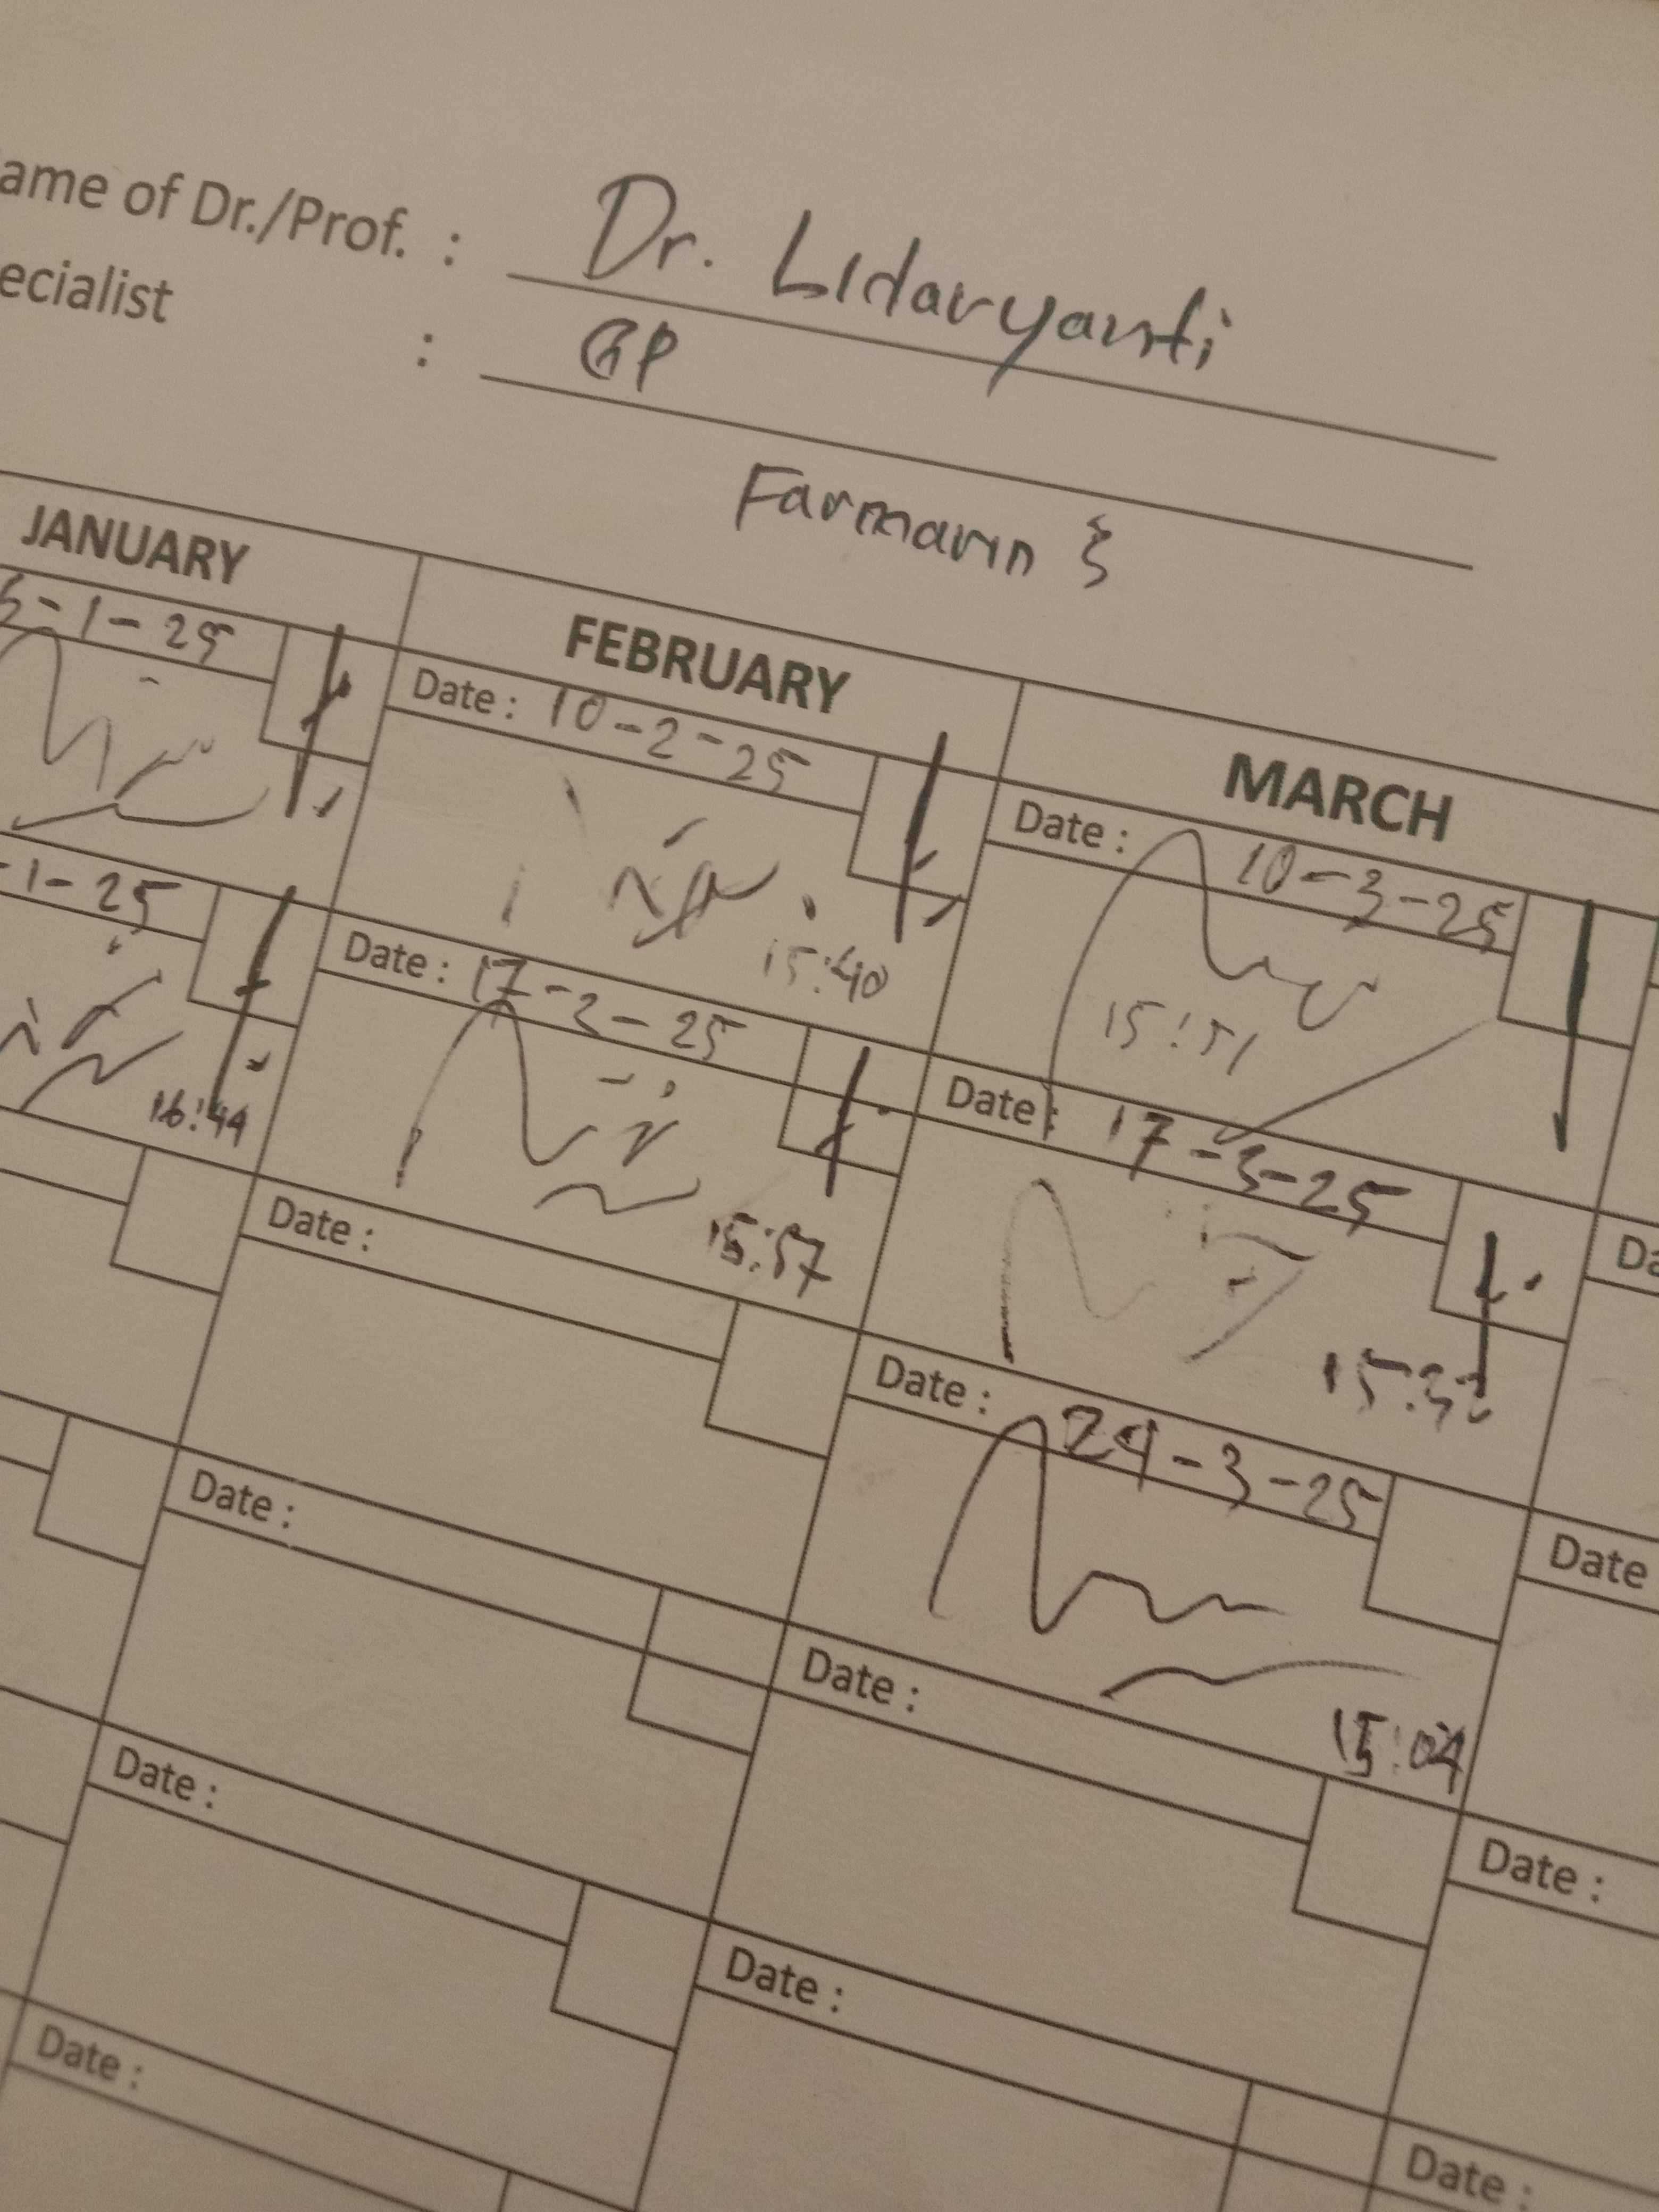 ame of Dr./Prof. : Dr. Lidaryanti
ecialist : GP
Farmarin
JANUARY FEBRUARY MARCH
6-1-25
Date : 10-2-25
15:40
Date : 10-3-25
15:51
-1-25
16:44
Date : 17-2-25
15:57
Date : 17-3-25
15:32
Da
Date :
Date : 24-3-25
15:04
Date
Date :
Date :
Date :
Date :
Date :
Date :
Date :